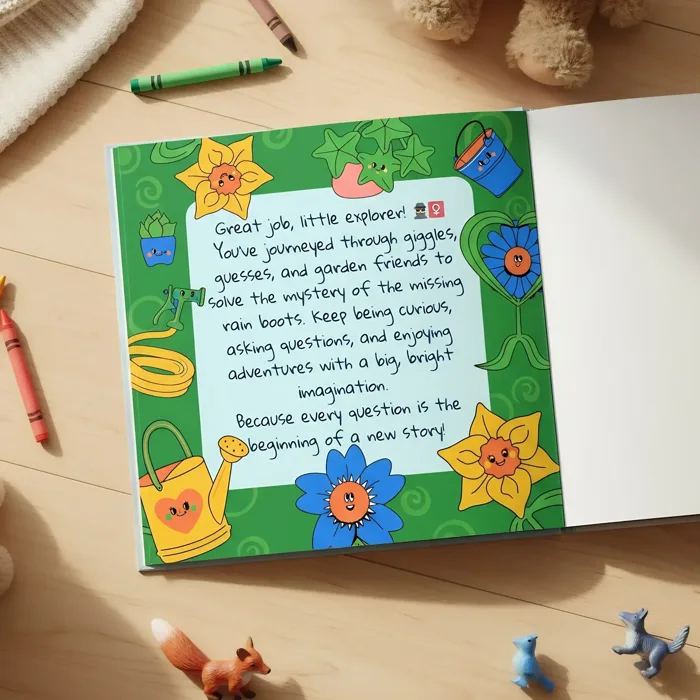 Great job, little explorer! 🕵️♀️
You've journeyed through giggles,
guesses, and garden friends to
solve the mystery of the missing
rain boots. Keep being curious,
asking questions, and enjoying
adventures with a big, bright
imagination.
Because every question is the
beginning of a new story!